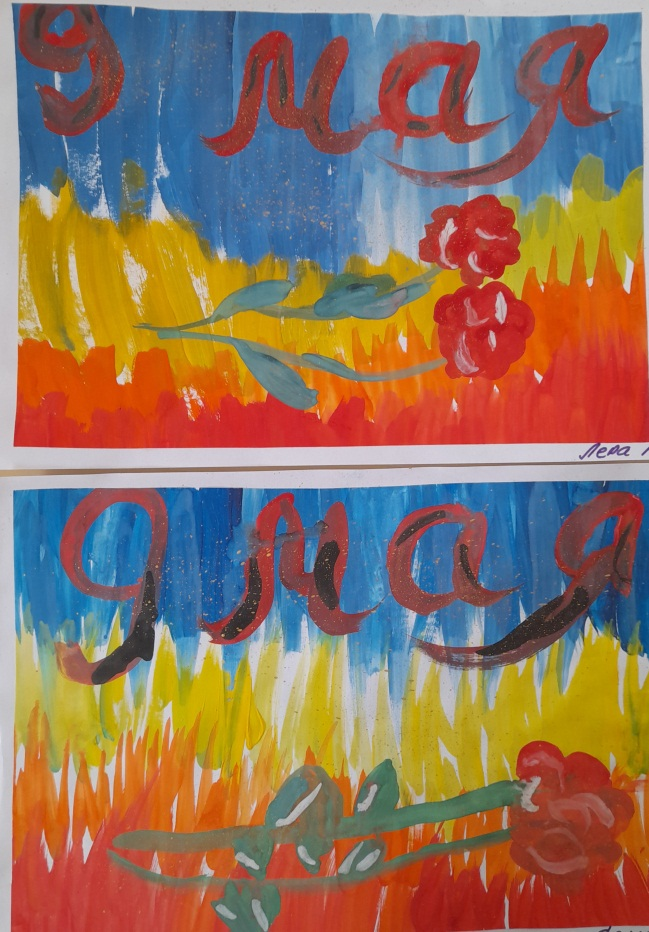 9 мая
Лера
9 мая